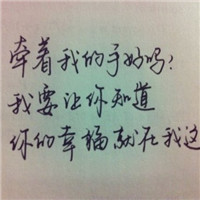 牵着我的手好吗？
我要让你知道
你的幸福就在我这